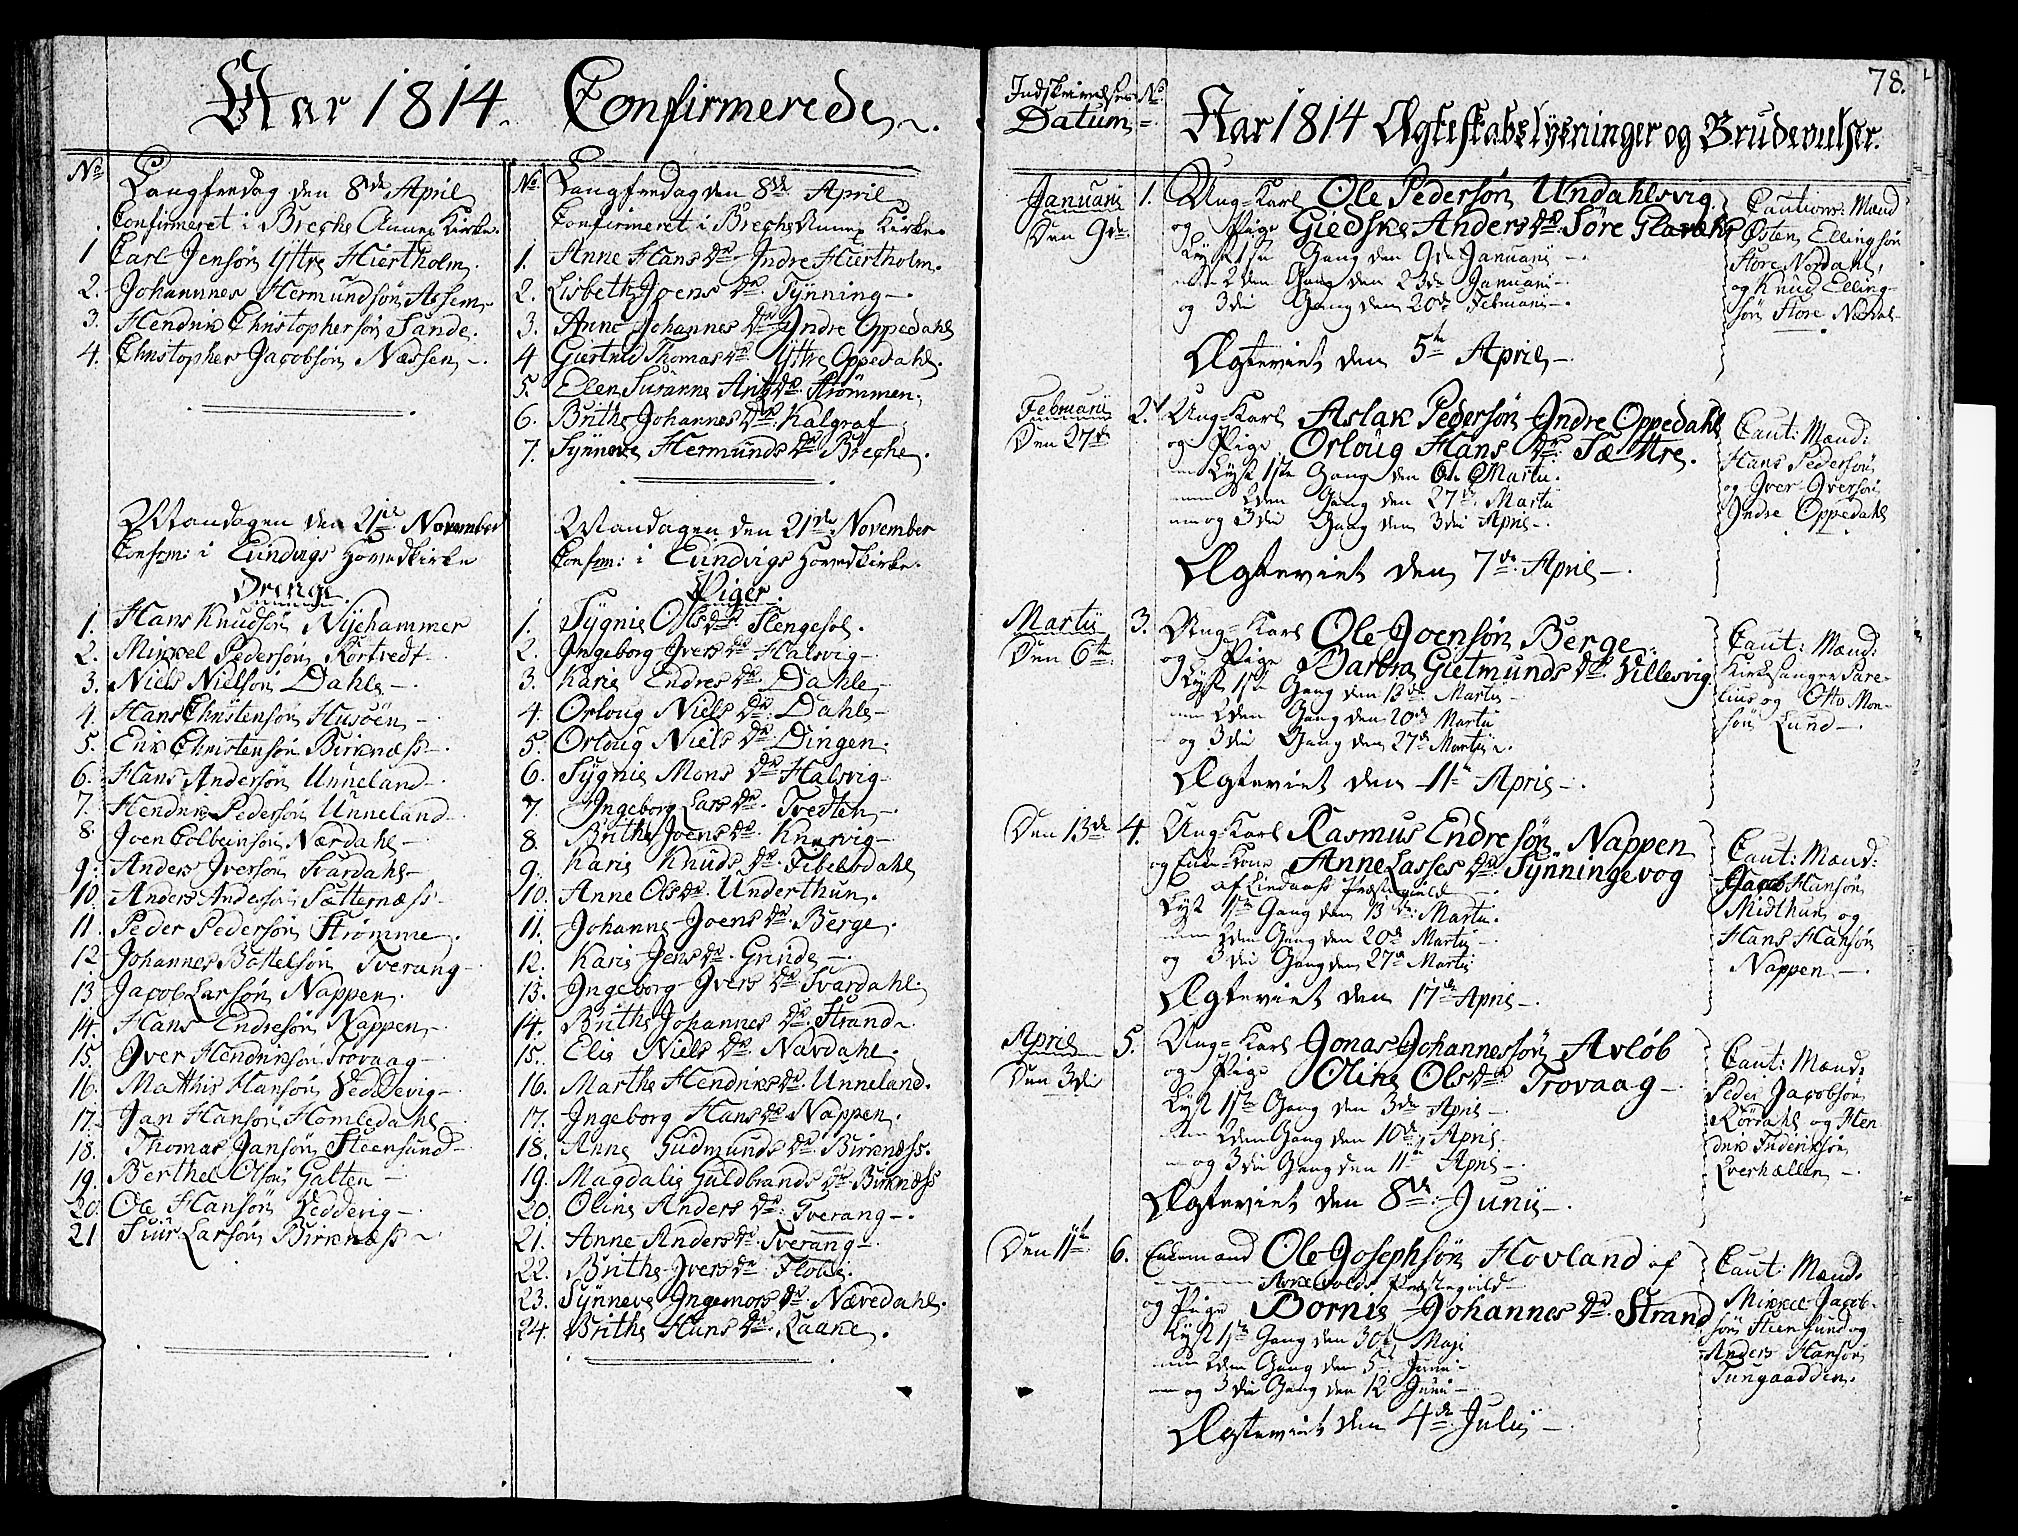 Aar 1814. Confirmerede
No
Langfredag den 8de April
Confirmeret i Breche Annex Kirke.
1 Carl Jensøn Yttre Hiertholm.
2. Johannnes Hermundsøn Assem
3. Hendrik Christophersøn Sande.
4. Christopher Jacobsøn Næssen
Mandagen den 21de November
Confirm: i Eundvigs Hovedkirke
Drenge
1. Hans Knudsøn Nyehammer
2. Mikkel Pedersøn Kortvedt
3. Niels Nielsøn Dahle
4. Hans Christensøn Husøen
5. Erik Christensøn Birknæss
6. Hans Andersøn Unneland
7. Hendrik Pedersøn Unneland
8. Joen Colbeinsøn Nærdahl
9. Anders Iversøn Svardahl
10. Anders Andersøn Sætternæss
11. Peder Pedersøn Strømme.
12 Johannes Bottelsøn Tverang
13 Jacob Larsøn Nappen.
14. Hans Endresøn Nappen
15. Iver Hendriksøn Trovaag
16. Matthis Hansøn Veddevig
17. Jan Hansøn Homledahl
18. Thomas Jansøn Steensund
19. Berthel Olsøn Galten
20. Ole Hansøn Vedderig
21 Siur Larsøn Birknæss
No
Langfredag den 8de April
Confirmeret i Breche Annex Kirke.
1. Anne Hans Dr. Indre Hiertholm.
2. Lisbeth Joens Dr. Tynning
3. Anne Johannes Dr. Indre Oppedahl
4 Giertrud Thomas Dr. Yttre Oppedahl.
5. Elen Susanne Dr. Strømmen.
6. Brithe Johannes Dr. Kalgraf
7. Synneve Hermunds Dr. Breche.
Mandagen den 21de November
Confirm: i Eundvigs Hovedkirke.
Piger.
1. Sygnie Ols Dr. Slengesol.
2. Ingeborg Ivers Dr. Halsvig
3. Karie Endres Dr. Dahle
4. Orloug Niels Dr. Dahle
5. Orloug Niels Dr. Dingen.
6. Sygnie Mons Dr. Halsvig
7. Ingeborg Lars Dr. Tvedten
8. Brithe Joens Dr. Knarvig
9. Karie Knuds Dr. Fibelsdahl
10. Anne Ols Dr. Underthun.
11. Johanne Joens Dr. Berge.
12. Karie Jens Dr. Grinde
13. Ingeborg Ivers Dr. Svardahl.
14. Brithe Johannes Dr. Strand
15. Elie Niels Dr. Navdahl.
16. Marthe Hendriks Dr. Unneland.
17. Ingeborg Hans Dr. Nappen.
18. Anne Gudmunds Dr. Birknæss.
19. Magdalie Guldbrands Dr. Birknæss
20. Oline Anders Dr. Tverang
21. Anne Anders Dr. Tverang
22. Brithe Ivers Dr. Flolie.
23. Synneve Ingemors Dr. Nævedahl.
24. Brithe Hans Dr. Kaake.
78.
Indskrivelses No
Datum
Aar 1814 Ægteskabslysninger og Brudevielser.
Januarii 1. Ung-Karl Ole Pedersøn Undahlsvig
Den 9de og Pige Giedske Anders Dr. Søre
Lyst 1ste Gang den 9de Januarii
2den Gang den 23de Januarii
og 3die Gang den 20de Februarii
Ægteviet den 5te April
Cautions: Mænd
Østen Ellingsøn
Store Nordahl,
og Knud Elling-
søn Store Nordal
Februarii 2. Ung-Karl Aslak Pedersøn Indre Oppedahl
Den 27de og Pige Orloug Hans Dr. Sættre.
Lyst 1ste Gang den 6te Martii.
2den Gang den 27de Martii
og 3die Gang den 3die April
Ægteviet den 7de April
Caut: Mænd:
Hans Pedersøn
og Iver Iversøn
Indre Oppedahl
Martii 3. Ung-Karl Ole Joensøn Berge
Den 6te og Pige Barbra Gietmunds Dr. Villesvig
Lyst 1ste Gang den 13de Martii
2den Gang den 20de Martii
og 3die Gang den 27de Martii
Ægteviet den 11te April
Caut: Mænd:
Kirkesanger Sare-
lius og Otto Mon-
søn Lund
Den 13de 4. Ung-Karl Rasmus Endresøn Nappen
og Enke-Kone Anne Lasses Dr. Synningevog
af Lindaas Præstegield
Lyst 1ste Gang den 13de Martii.
2den Gang den 20de Martii
og 3die Gang den 27de Martii
Ægteviet den 17de April
Caut: Mænd:
Jacob Hansøn
Midthun og
Hans Hansøn
Nappen
April 5. Ung-Karl Jonas Johannessøn Avløb
Den 3die og Pige Oline Ols Dr. Trovaag
Lyst 1ste Gang den 3die April
2den Gang den 10de April
og 3die Gang den 11te April
Ægteviet den 8de Junii
Caut: Mænd:
Peder Jacobsøn
Rørdahl og Hen
drik Frideriksøn
Everhællen
Den 11te 6. Enkemand Ole Josephsøn Hovland af
Præstegield
og Pige Bornie Johannes Dr. Strand
Lyst 1ste Gang den 30te Maji
2den Gang den 5te Junii
og 3die Gang den 12 Junii
Ægteviet den 4de Julii
Caut: Mænd.
Mikkel Jacob-
søn Steensund og
Anders Hansøn
Tungaadden.